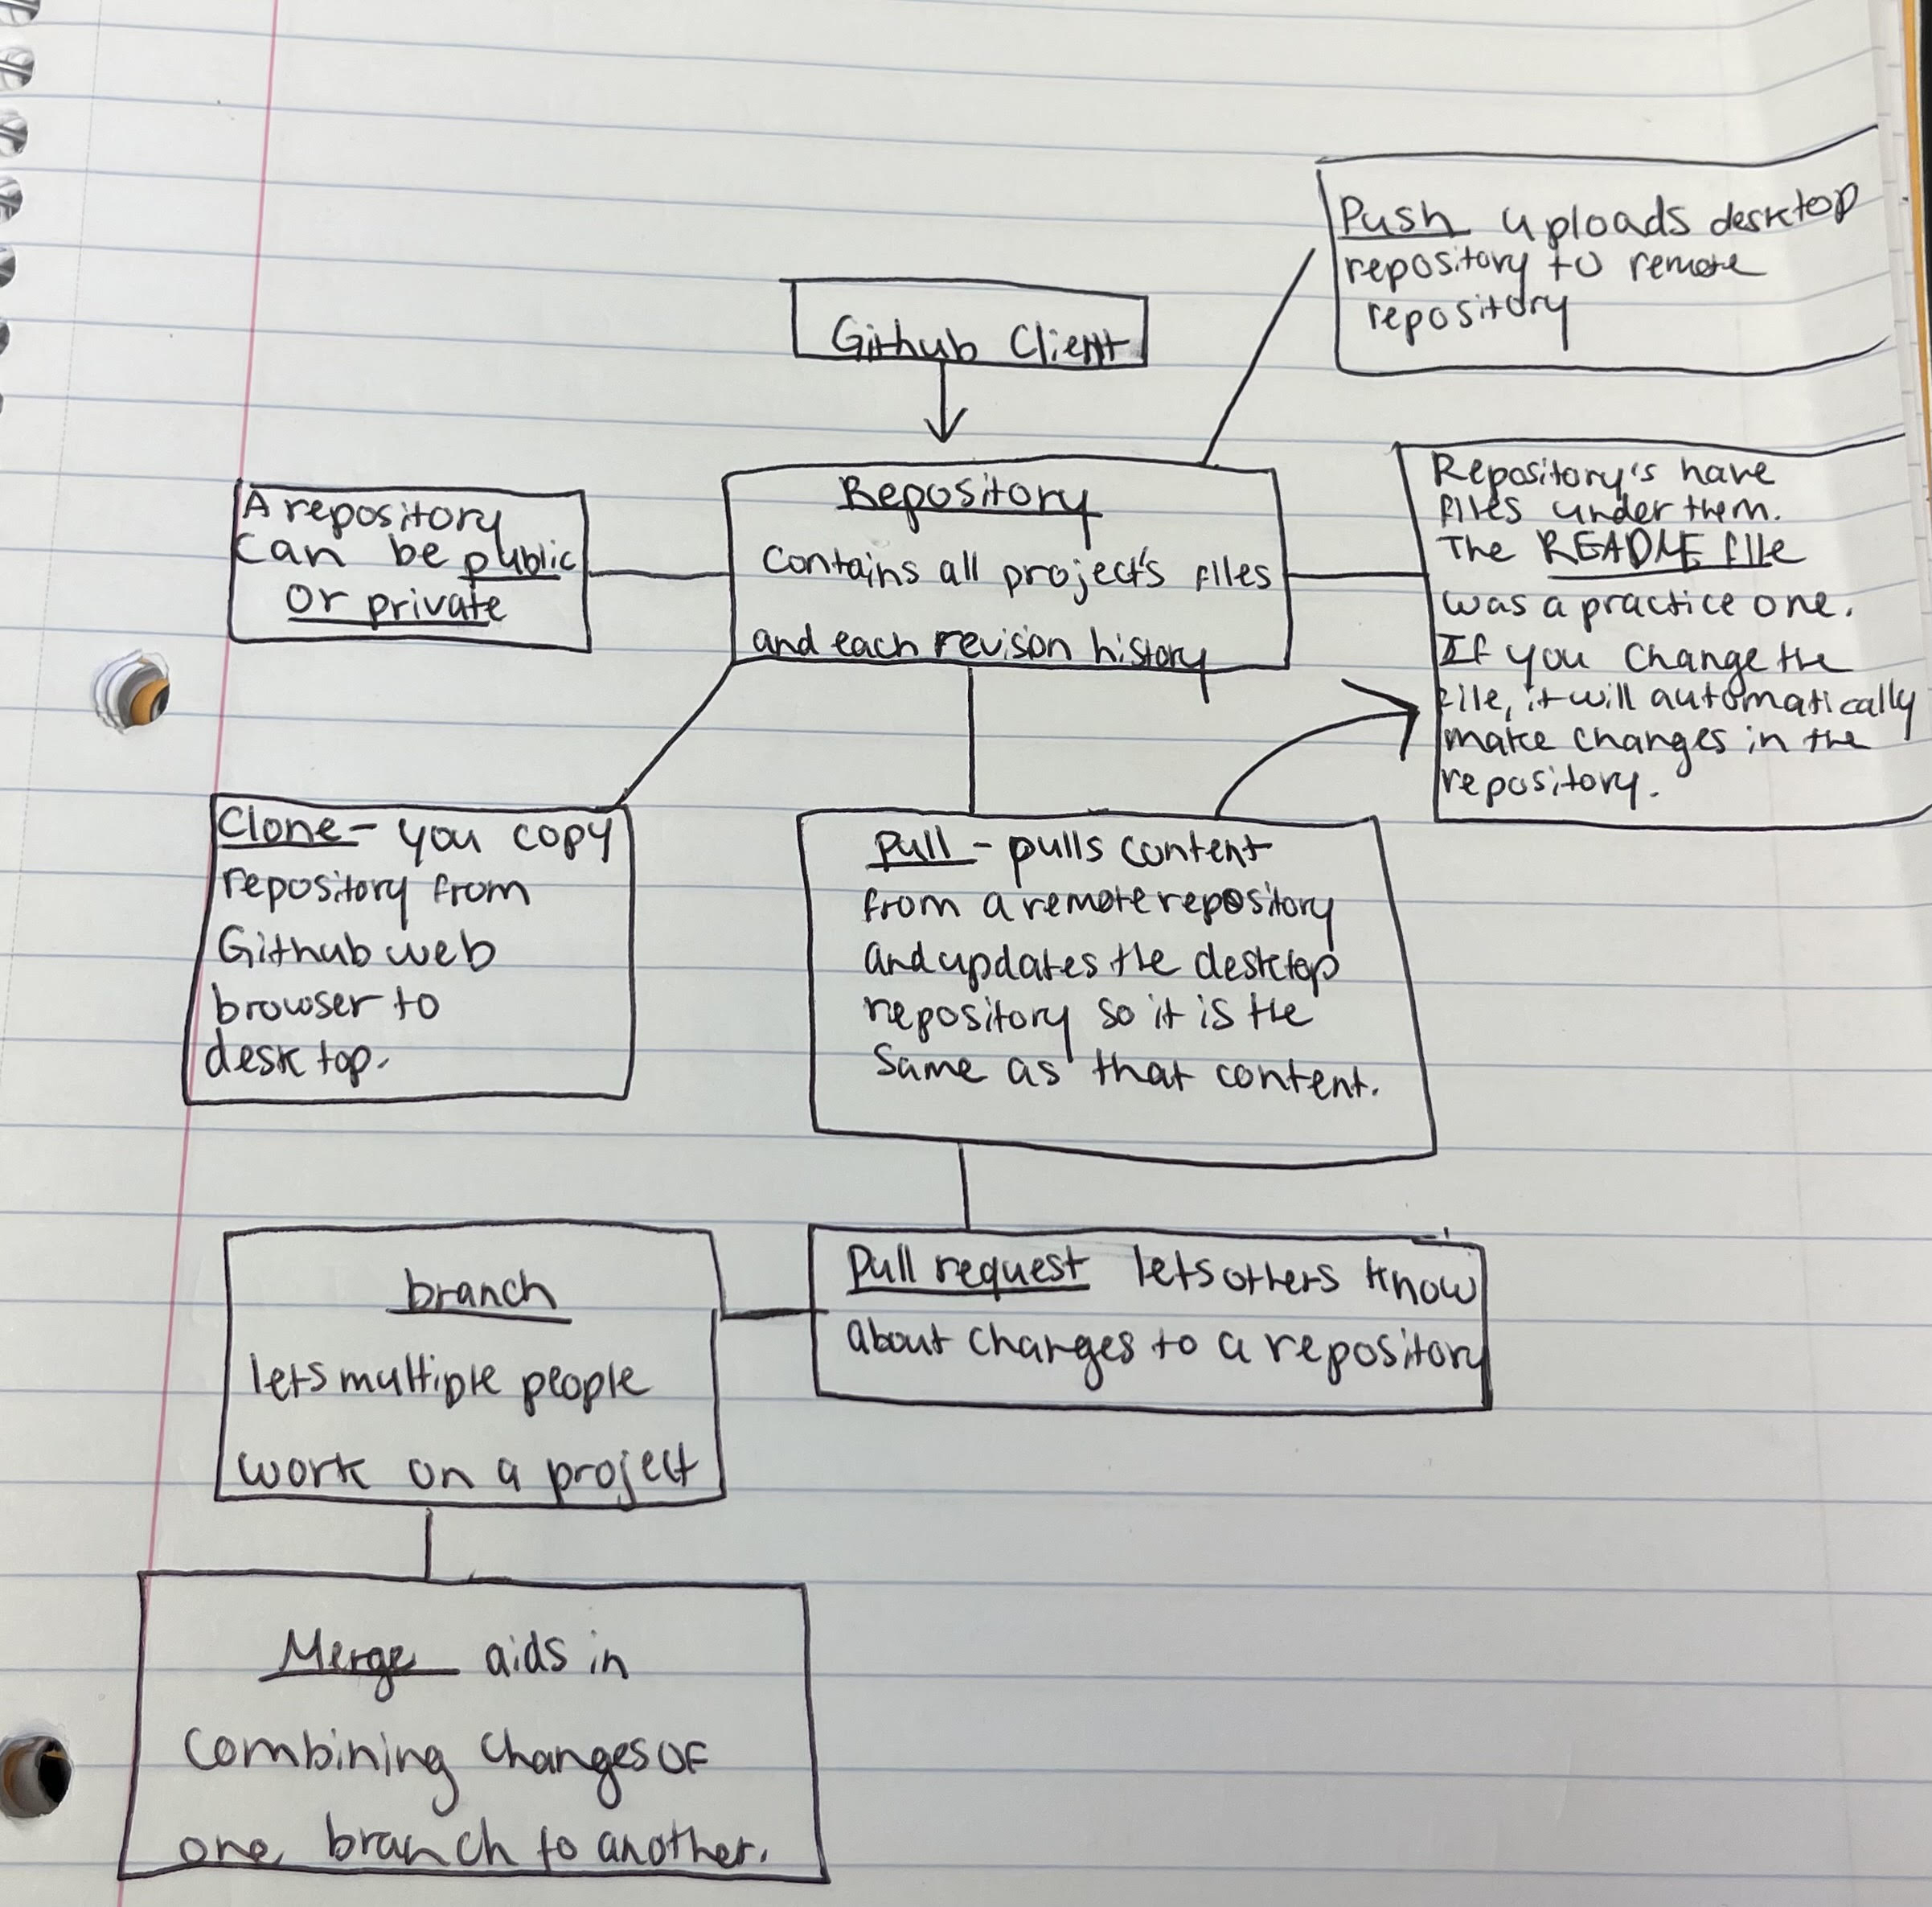 Push uploads desktop
repository to remote
repository
Github Client
A repository
can be public
or private
Repository
contains all project's files
and each revision history
Repository's have
files under them.
The README file
was a practice one.
If you change the
file, it will automatically
make changes in the
repository.
Clone - you copy
repository from
Github web
browser to
desktop.
Pull - pulls content
from a remote repository
and updates the desktop
repository so it is the
same as that content.
branch
lets multiple people
work on a project
Pull request lets others know
about changes to a repository
Merge aids in
combining changes of
one branch to another.